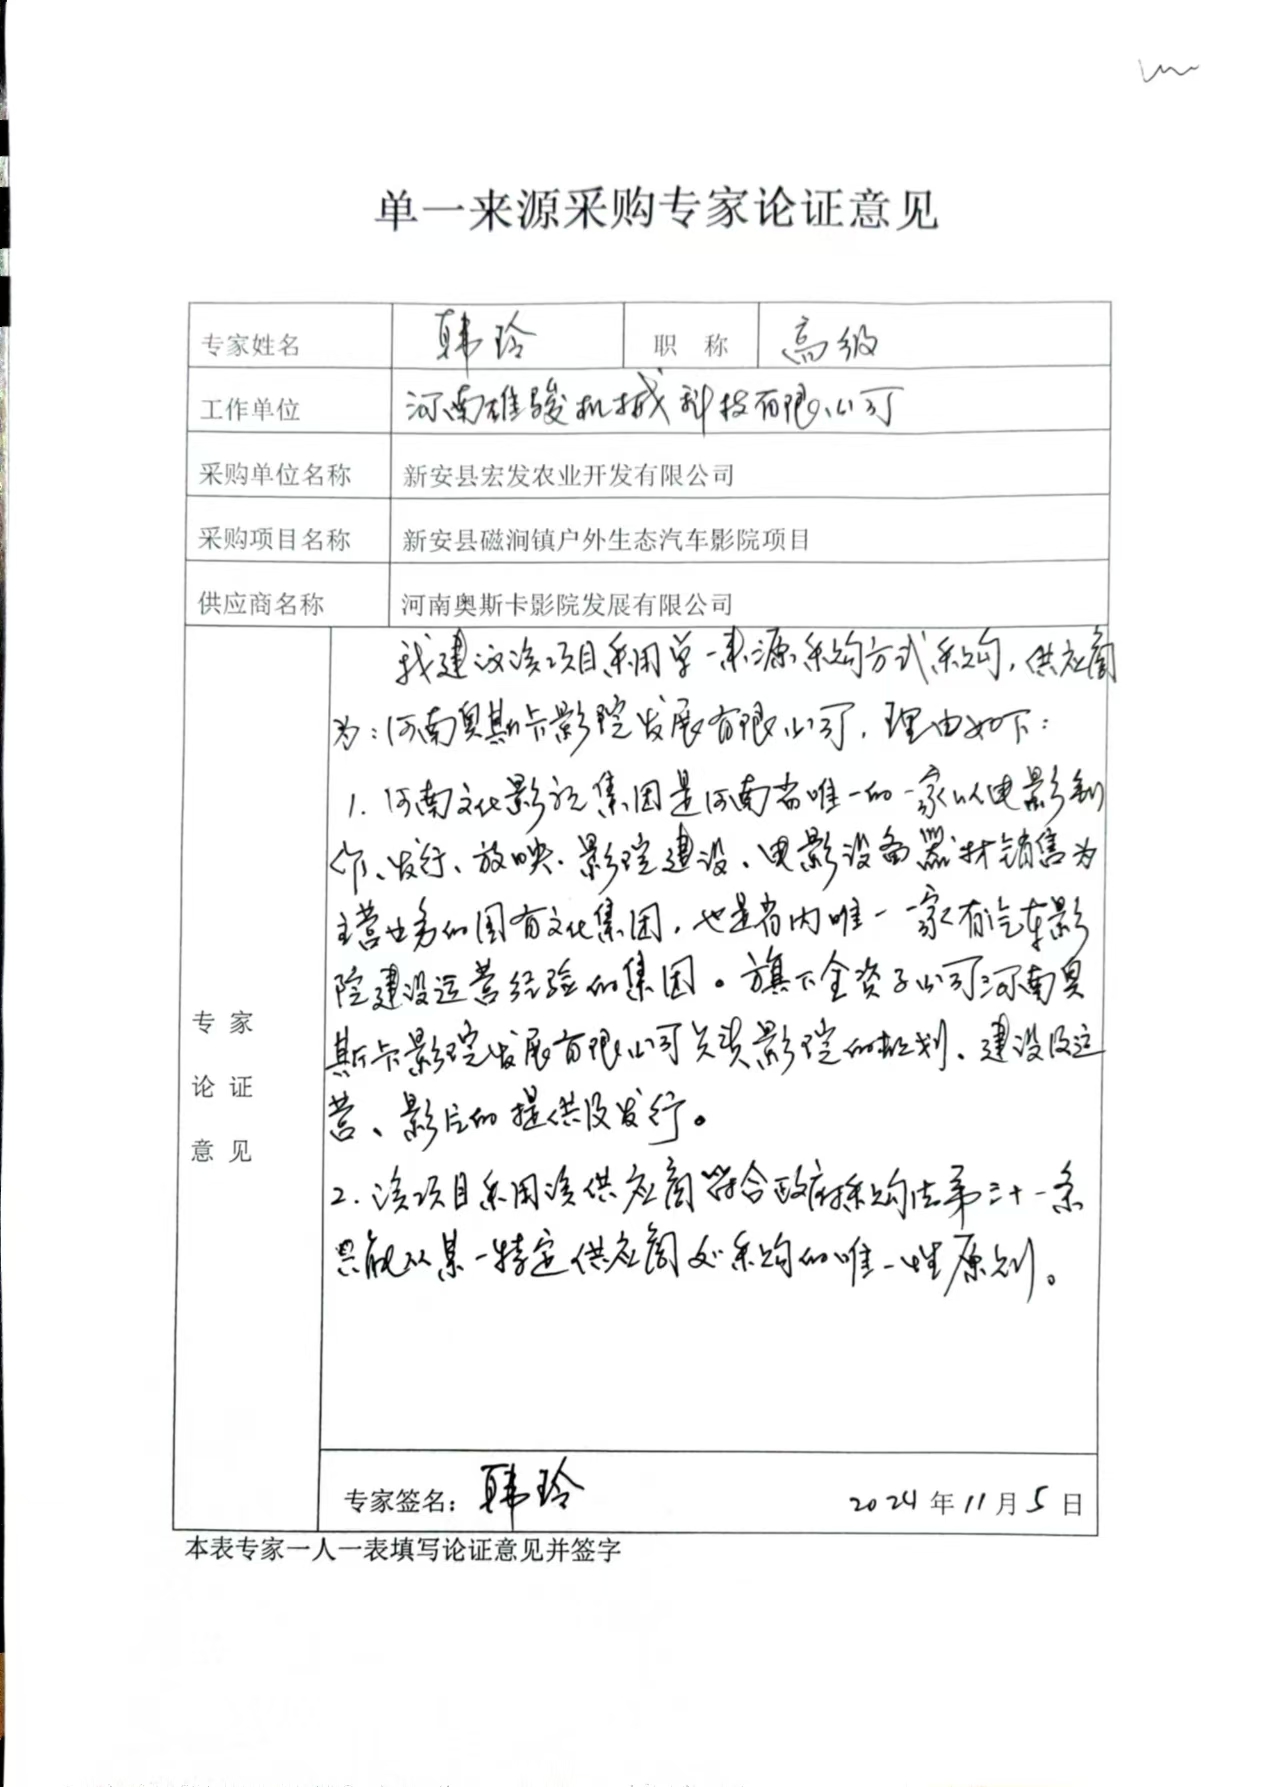 单一来源采购专家论证意见
专家姓名 韩玲 职 称 高级
工作单位 河南雄骏机械科技有限公司
采购单位名称 新安县宏发农业开发有限公司
采购项目名称 新安县磁涧镇户外生态汽车影院项目
供应商名称 河南奥斯卡影院发展有限公司
我建议该项目采用单一来源采购方式采购，供应商
为：河南奥斯卡影院发展有限公司，理由如下：
1. 河南文化影视集团是河南省唯一的一家以电影制
作、发行、放映、影院建设、电影设备器材销售为
主营业务的国有文化集团，也是省内唯一一家有汽车影
院建设运营经验的集团。旗下全资子公司河南奥
斯卡影院发展有限公司负责影院的规划、建设及运
营、影片的提供及发行。
2. 该项目采用该供应商符合政府采购法第三十一条
只能从某一特定供应商处采购的唯一性原则。
专 家
论 证
意 见
专家签名：韩玲 2024年11月5日
本表专家一人一表填写论证意见并签字